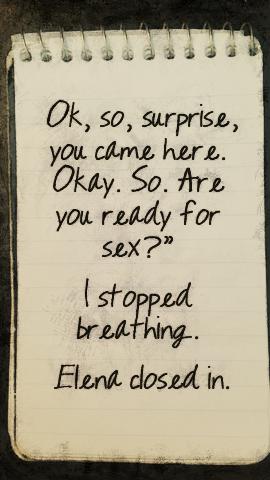 Ok, so, surprise,
you came here.
Okay. So. Are
you ready for
sex?”
I stopped
breathing.
Elena closed in.